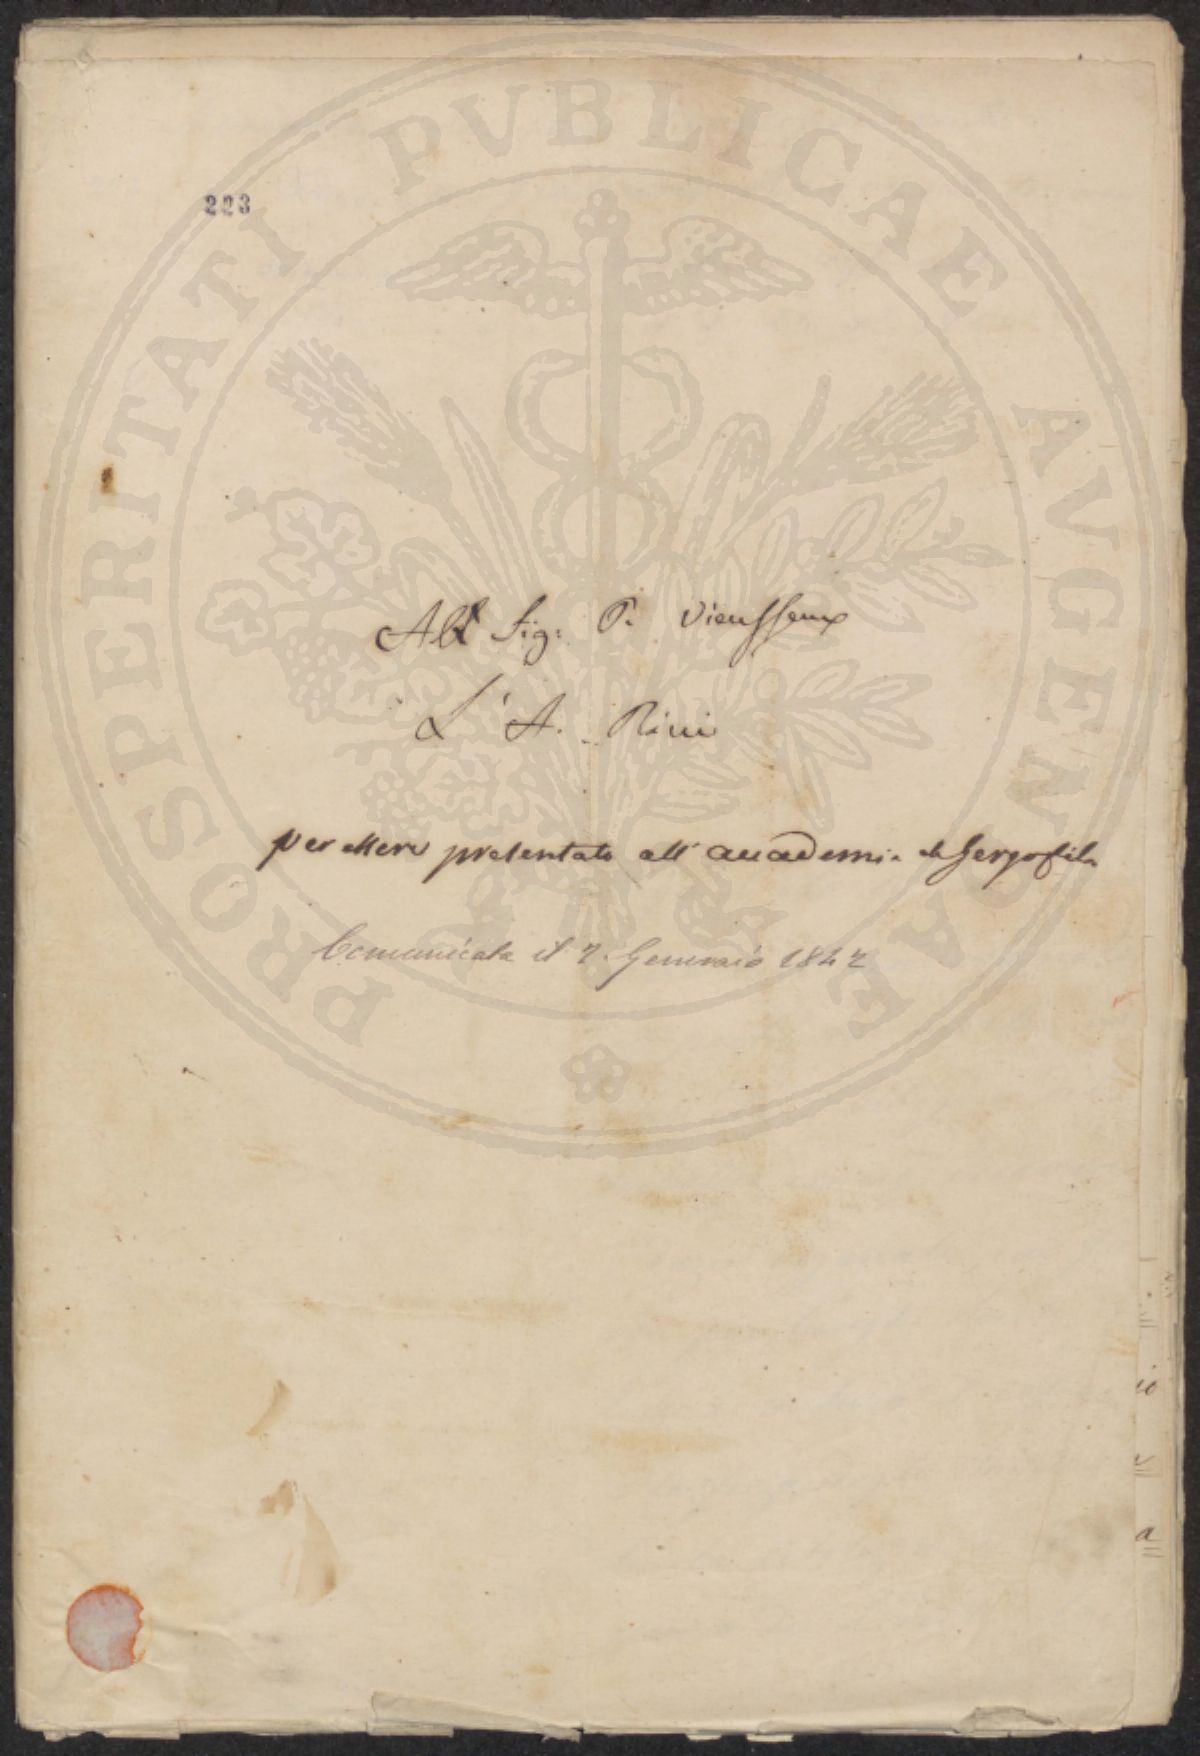 PROSPERITATI PVBLICAE AVGENDAE
223
All Sig: P. Vieusseux
L'A. Rini
per essere presentato all'accademia de Gergofili
Comunicata il 2. Gennaio 1842
io
a